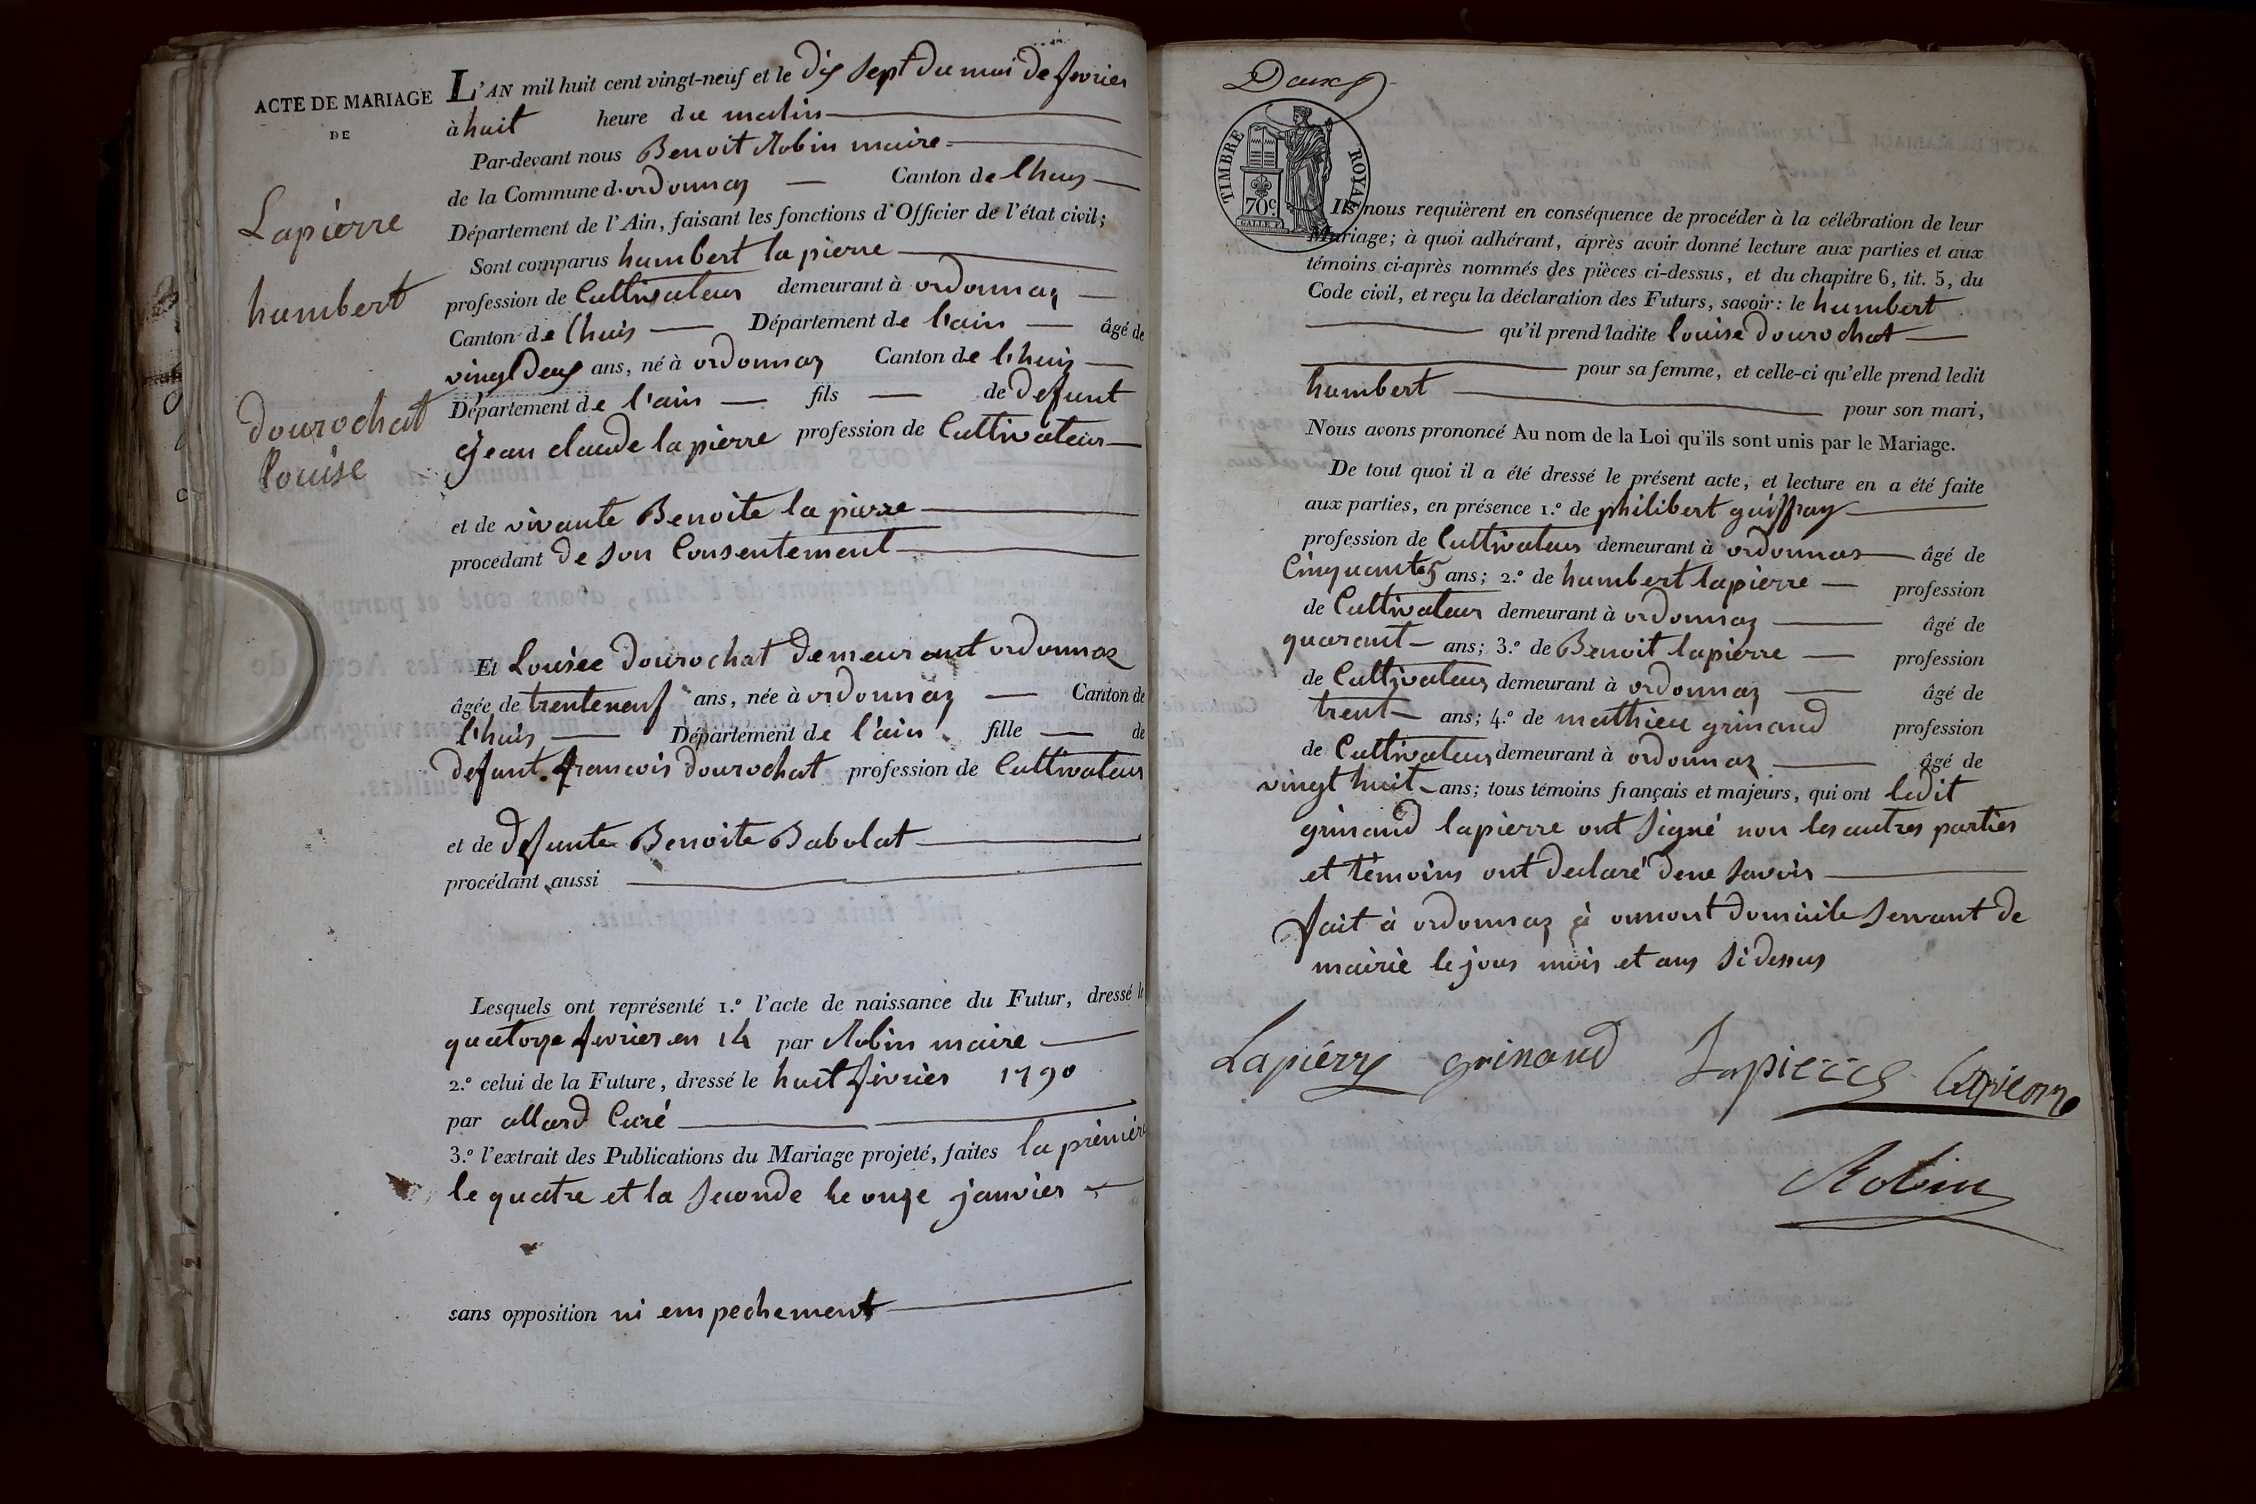 ACTE DE MARIAGE
DE
Lapierre
humbert
dourochat
louise
L'AN mil huit cent vingt-neuf et le dix sept du moi de fevrier
à huit heure du matin
Par-devant nous Benoit Robin maire
de la Commune d'ordonnaz Canton de lhuis
Département de l'Ain, faisant les fonctions d'Officier de l'état civil;
Sont comparus humbert lapierre
profession de Cultivateur demeurant à ordonnaz
Canton de lhuis Département de l'ain âgé de
vingt deux ans, né à ordonnaz Canton de lhuis
Département de l'ain fils de defunt
jean claude lapierre profession de Cultivateur
et de vivante Benoite lapierre
procédant de son Consentement
Et Louise dourochat demeurant ordonnaz
âgée de trenteneuf ans, née à ordonnaz Canton de
l'huis Département de l'ain fille de
defunt francois dourochat profession de Cultivateur
et de defunte Benoite Babolat
procédant aussi
Lesquels ont représenté 1.º l'acte de naissance du Futur, dressé le
quatorze fevrier en 14 par Robin maire
2.º celui de la Future, dressé le huit fevrier 1790
par allard Curé
3.º l'extrait des Publications du Mariage projeté, faites la première
le quatre et la seconde le onze janvier
sans opposition ni empechement
Deux
TIMBRE ROYAL
70c.
Ils nous requièrent en conséquence de procéder à la célébration de leur
Mariage; à quoi adhérant, après avoir donné lecture aux parties et aux
témoins ci-après nommés des pièces ci-dessus, et du chapitre 6, tit. 5, du
Code civil, et reçu la déclaration des Futurs, savoir: le humbert
qu'il prend ladite louise dourochat
pour sa femme, et celle-ci qu'elle prend ledit
humbert pour son mari,
Nous avons prononcé Au nom de la Loi qu'ils sont unis par le Mariage.
De tout quoi il a été dressé le présent acte, et lecture en a été faite
aux parties, en présence 1.º de philibert guiffray
profession de Cultivateur demeurant à ordonnaz âgé de
Cinquante 5 ans; 2.º de humbert lapierre profession
de Cultivateur demeurant à ordonnaz âgé de
quarant ans; 3.º de Benoit lapierre profession
de Cultivateur demeurant à ordonnaz âgé de
trent ans; 4.º de mathieu grinand profession
de Cultivateur demeurant à ordonnaz âgé de
vingt huit ans; tous témoins français et majeurs, qui ont ledit
grinand lapierre ont signé non les autres parties
et témoins ont declaré dene savoir
fait à ordonnaz à domicile servant de
mairie le jour mois et ans sidessus
Lapierre grinand Lapierre Lapierre
Robin